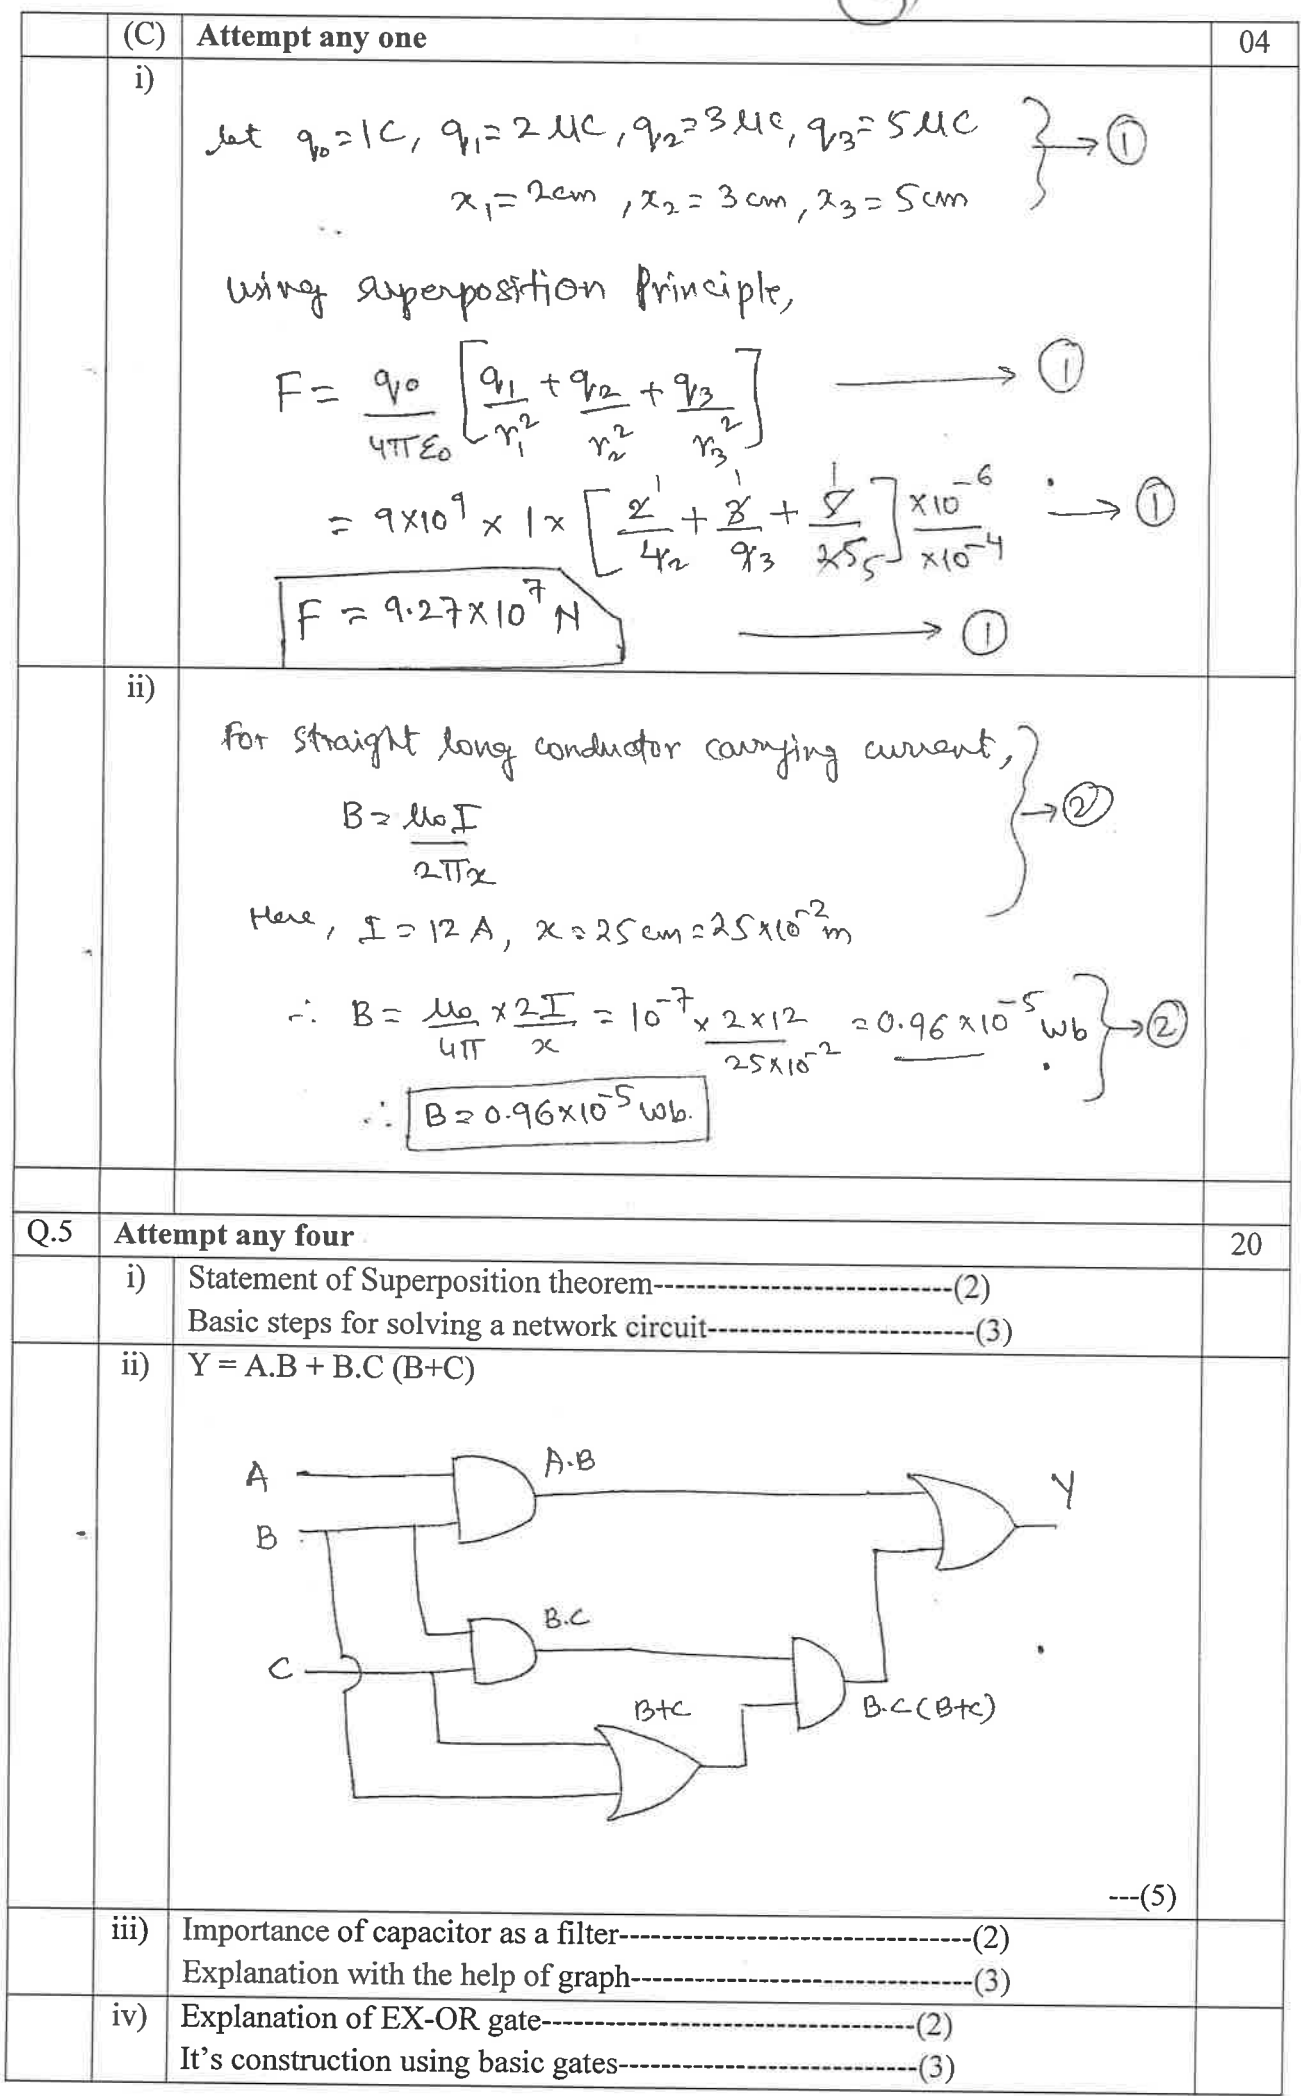 (C) Attempt any one 04
i)
let q₀=1C, q₁=2 μC, q₂=3 μC, q₃=5 μC } → (1)
x₁=2cm, x₂=3cm, x₃=5cm
using superposition Principle,
F = q₀/4πε₀ [q₁/r₁² + q₂/r₂² + q₃/r₃²] → (1)
= 9×10⁹ × 1 × [2/4 + 3/9 + 5/25] ×10⁻⁶/×10⁻⁴ → (1)
1 1 1
2 3 5
F = 9.27×10⁷ N → (1)
ii)
For straight long conductor carrying current,
B = μ₀I/2πx } → (2)
Here, I = 12 A, x = 25 cm = 25×10⁻² m
∴ B = μ₀/4π × 2I/x = 10⁻⁷ × 2×12/25×10⁻² = 0.96×10⁻⁵ wb } → (2)
∴ B = 0.96×10⁻⁵ wb.
Q.5 Attempt any four 20
i) Statement of Superposition theorem----------------------------(2)
Basic steps for solving a network circuit-------------------------(3)
ii) Y = A.B + B.C (B+C)
A A.B Y
B
B.C
C
B+C B.C(B+C)
---(5)
iii) Importance of capacitor as a filter---------------------------------(2)
Explanation with the help of graph--------------------------------(3)
iv) Explanation of EX-OR gate-----------------------------------(2)
It's construction using basic gates----------------------------(3)